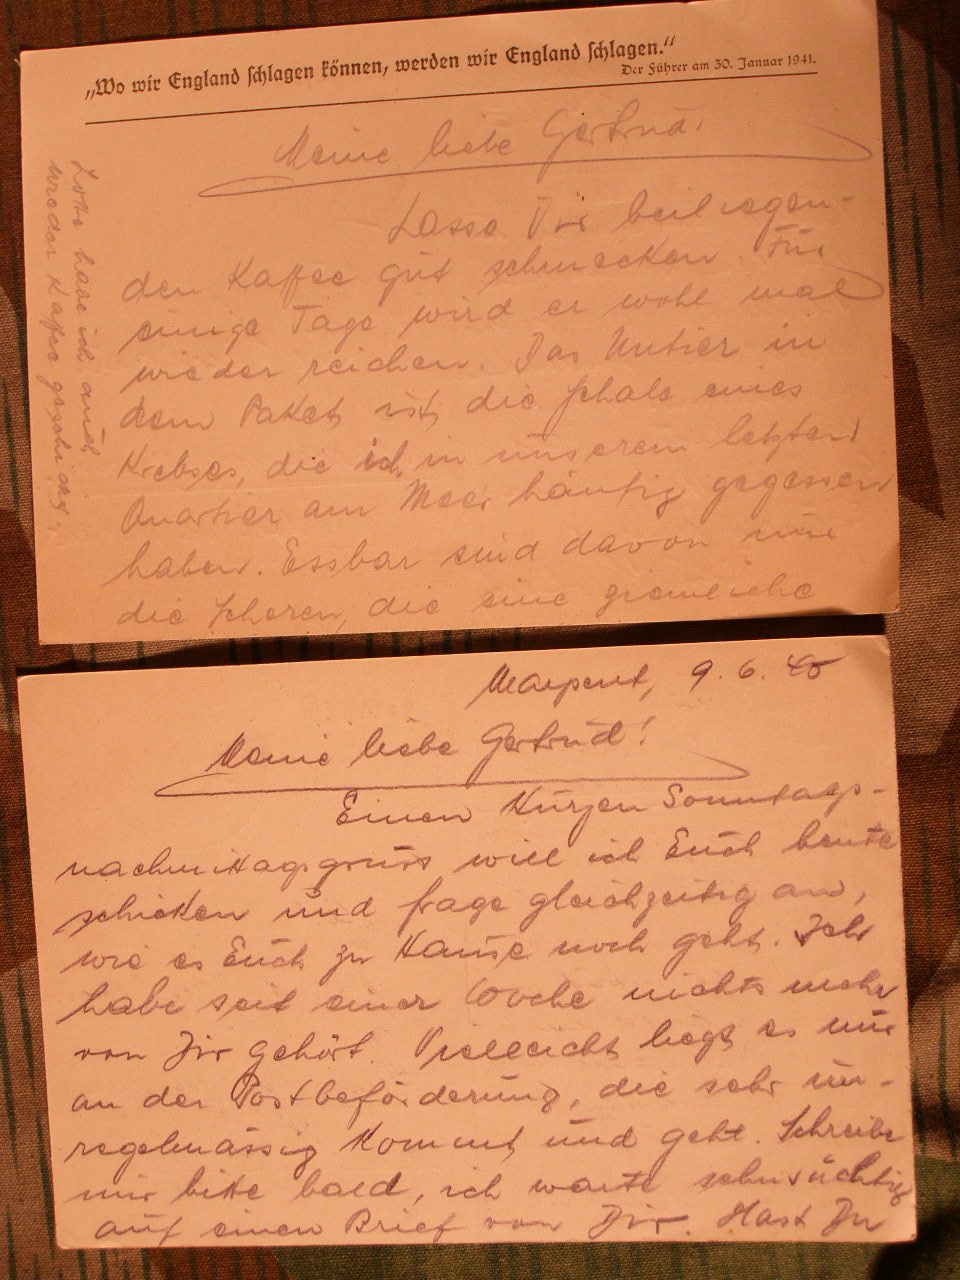 „Wo wir England schlagen können, werden wir England schlagen.“
Der Führer am 30. Januar 1941.
Meine liebe Gertrud!
Lasse Dir beiliegen-
den Kaffee gut schmecken. Für
einige Tage wird er wohl mal
wieder reichen. Das Untier in
dem Paket ist die Schale eines
Krebses, die ich in unserem letzten
Quartier am Meer häufig gegessen
haben. Essbar sind davon nur
die Scheren, die eine ziemliche
Lotte habe ich auch
wieder Kaffee geschickt.
9. 6. 40
Meine liebe Gertrud!
Einen kurzen Sonntags-
nachmittagsgruss will ich Euch heute
schicken und frage gleichzeitig an,
wie es Euch zu Hause noch geht. Ich
habe seit einer Woche nichts mehr
von Dir gehört. Vielleicht liegt es nur
an der Postbeförderung, die sehr un-
regelmässig kommt und geht. Schreibe
mir bitte bald, ich warte sehnsüchtig
auf einen Brief von Dir. Hast Du